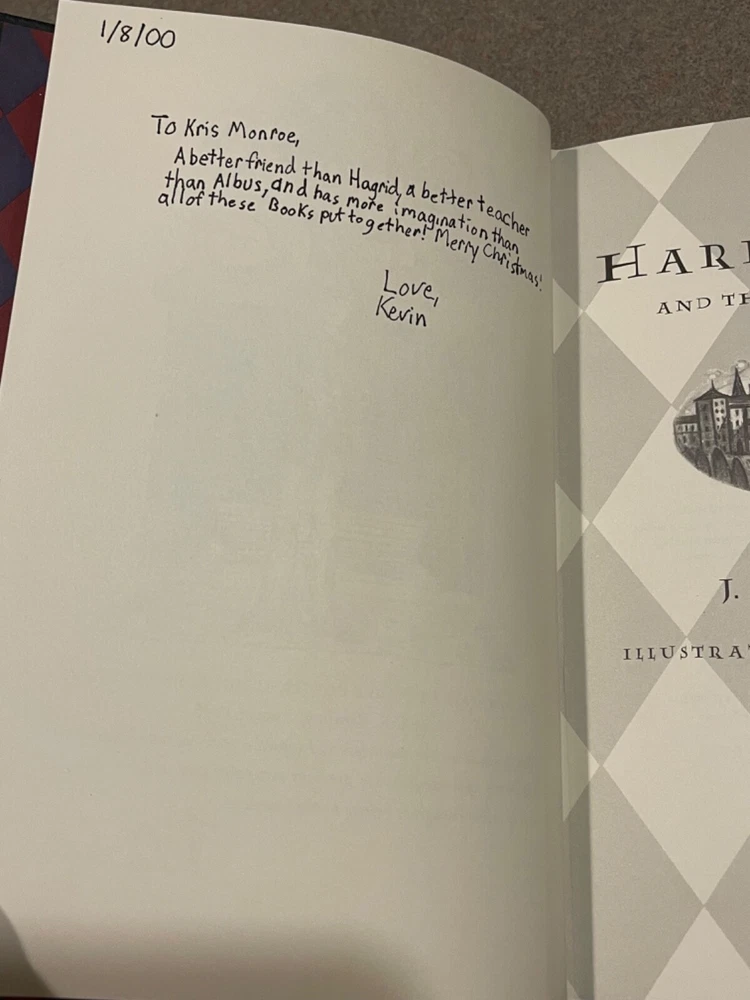 1/8/00
To Kris Monroe,
A better friend than Hagrid, a better teacher
than Albus, and has more imagination than
all of these Books put together! Merry Christmas!
Love,
Kevin
HAR
AND TH
J.
ILLUSTRA